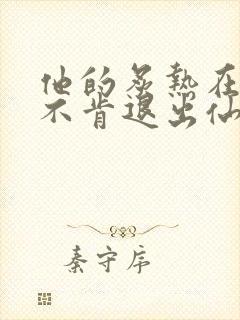 他的炙热在
不肯退出仙
秦守序